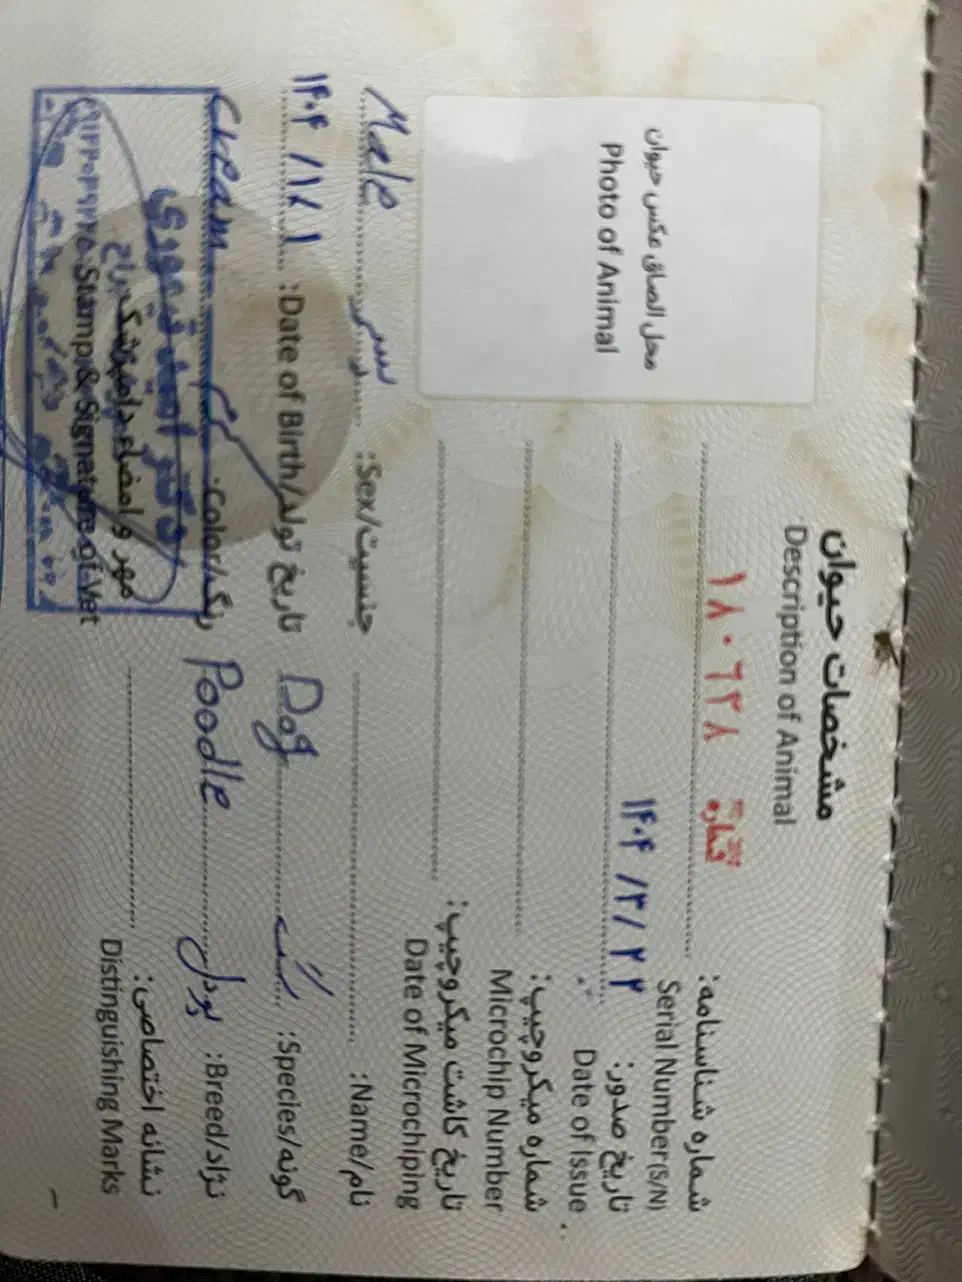 مشخصات حیوان
Description of Animal
محل الصاق عکس حیوان
Photo of Animal
شماره شناسنامه: شماره ۱۸۰۶۲۸
Serial Number(S/N)
تاریخ صدور: ۱۴۰۴/۳/۲۲
Date of Issue
شماره میکروچیپ:
Microchip Number
تاریخ کاشت میکروچیپ:
Date of Microchiping
نام/Name:
جنسیت/Sex: نر Male
گونه/Species: سگ Dog
تاریخ تولد/Date of Birth: ۱۴۰۴/۱/۱
نژاد/Breed: پودل Poodle
رنگ/Color: کرم Cream
نشانه اختصاصی:
Distinguishing Marks
دکتر امید تیموری
مهر و امضاء دامپزشک
Stamp & Signature of Vet